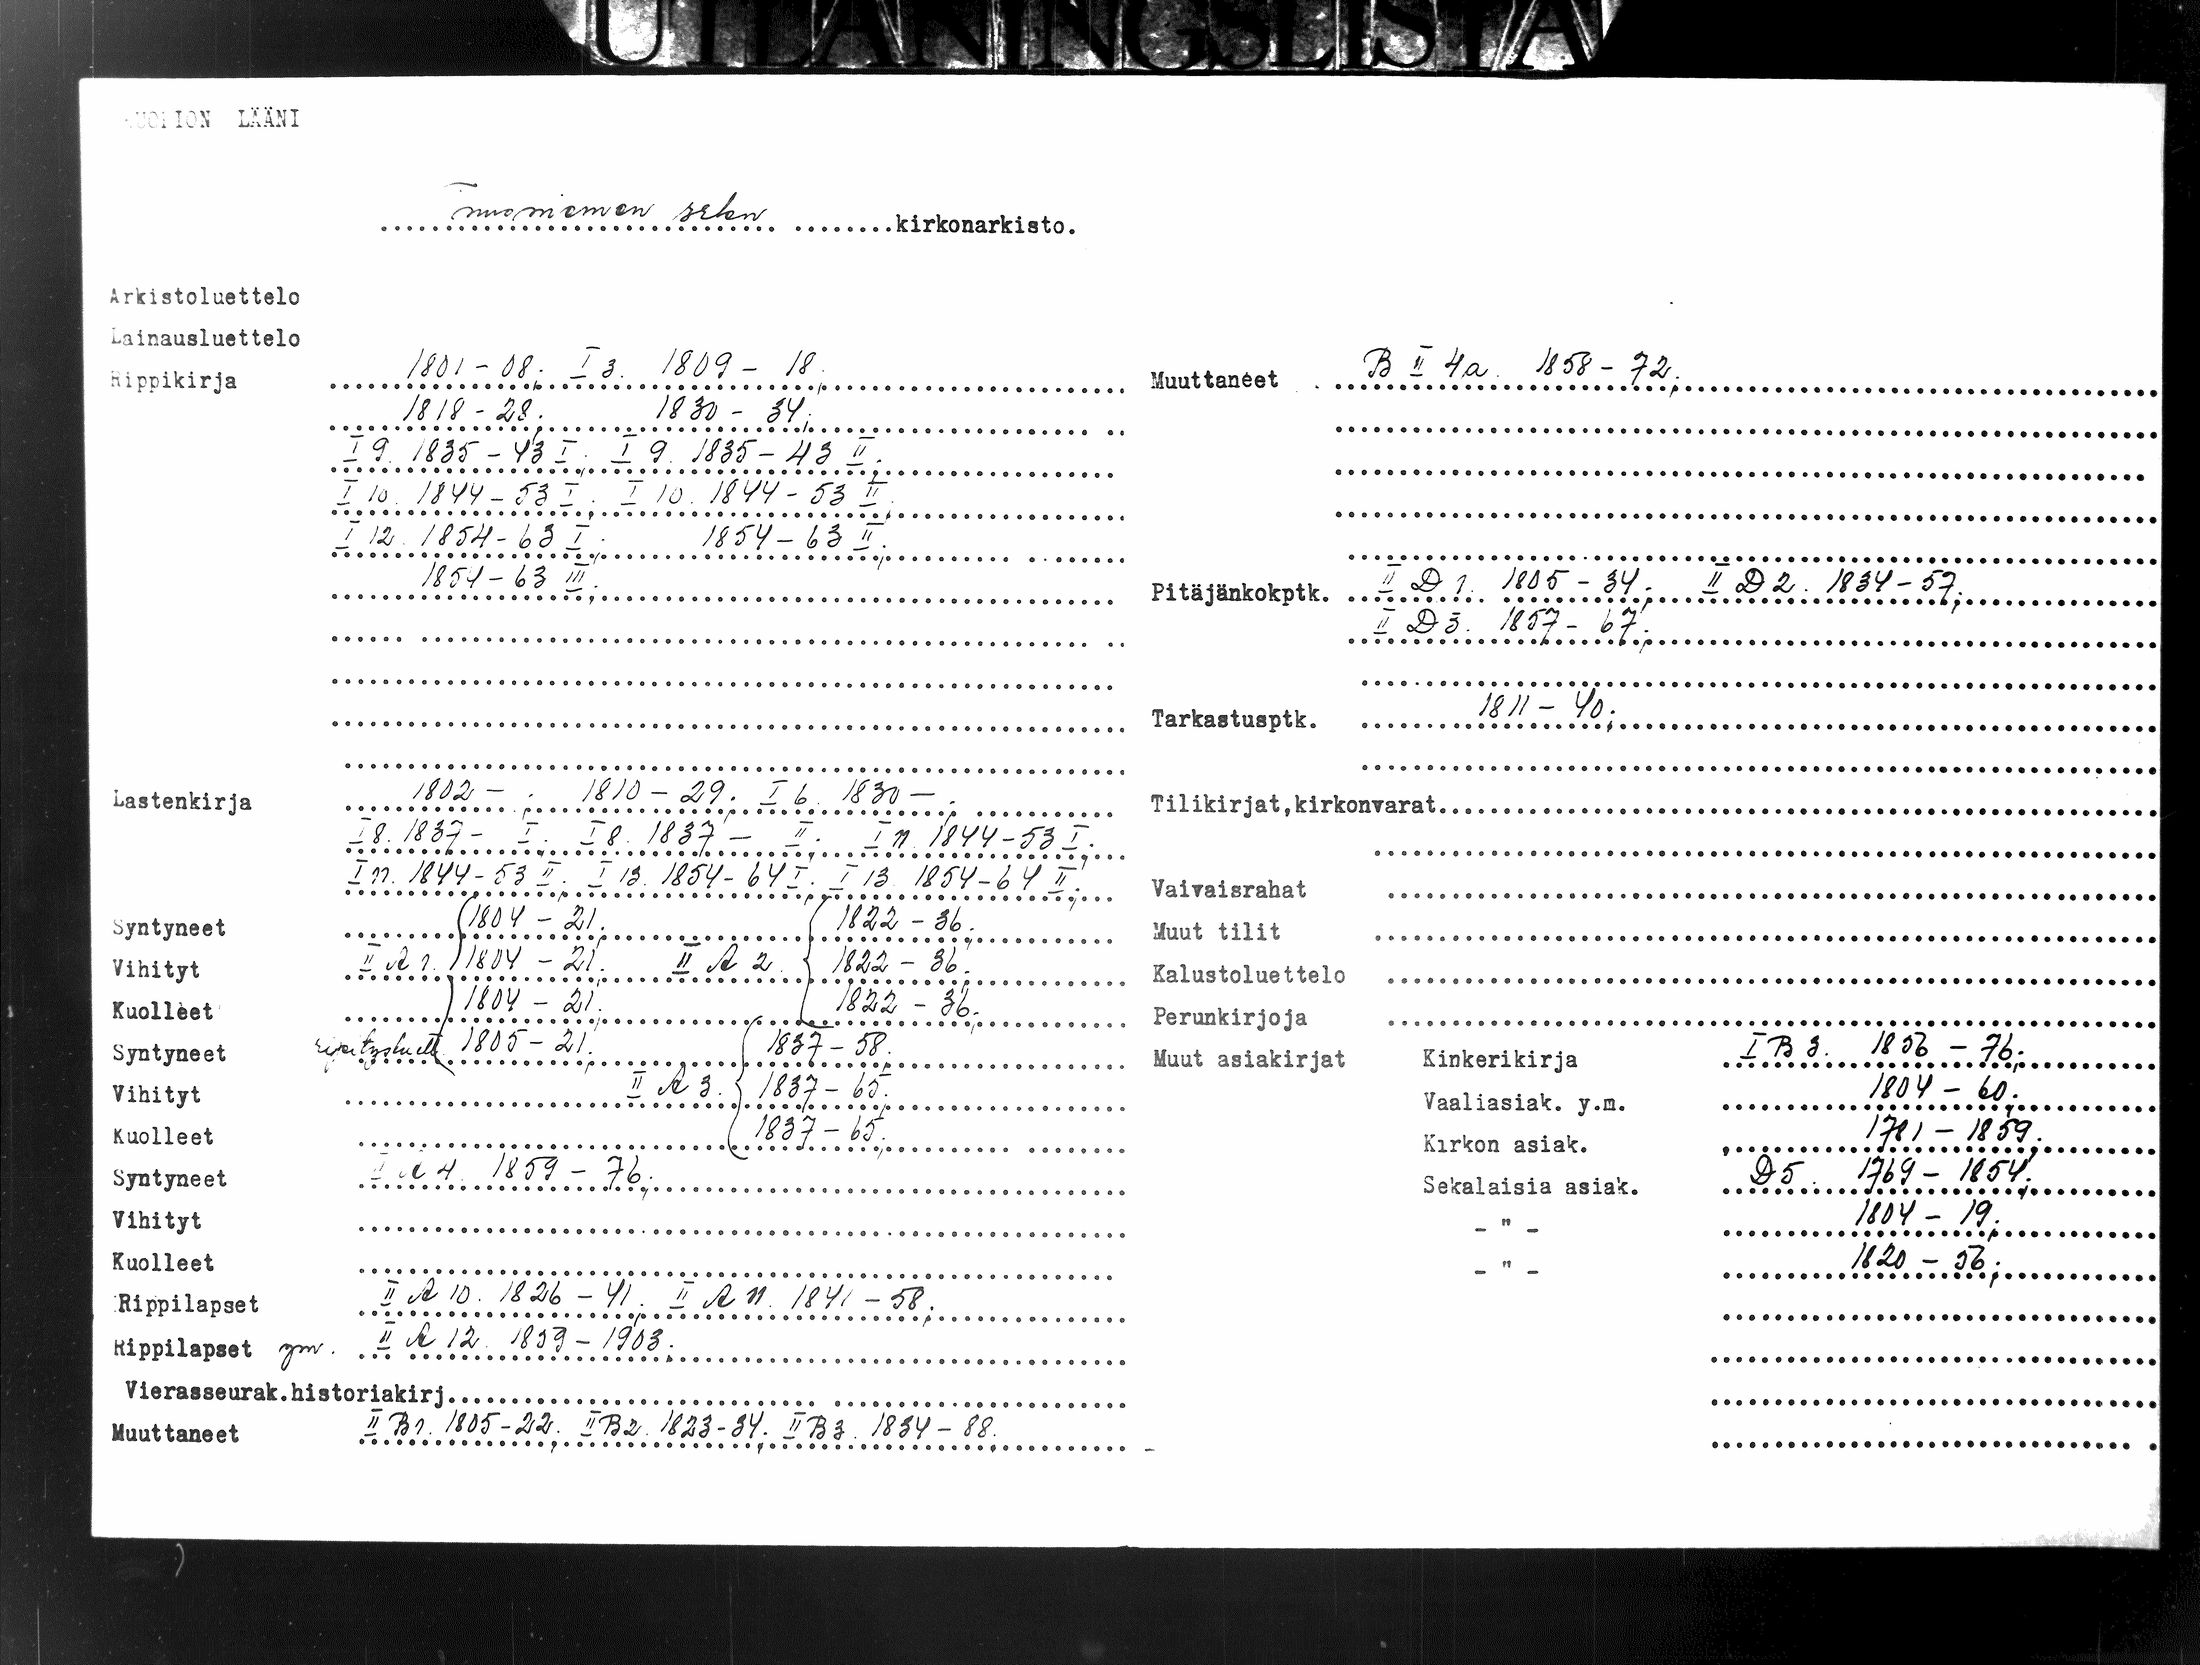 UTLÅNINGSLISTA
KUOPION LÄÄNI
Tuusniemen srkn kirkonarkisto.
Arkistoluettelo
Lainausluettelo
Rippikirja 1801-08; I 3. 1809 - 18;
1818-28; 1830 - 34;
I 9. 1835-43 I; I 9. 1835-43 II;
I 10. 1844-53 I; I 10. 1844-53 II;
I 12. 1854-63 I; 1854-63 II;
1854-63 III;
Lastenkirja 1802 - ; 1810-29; I 6. 1830 - ;
I 8. 1837 - I; I 8. 1837 - II; I 11. 1844-53 I;
I 11. 1844-53 II; I 13. 1854-64 I; I 13. 1854-64 II;
Syntyneet 1804 - 21; 1822 - 36;
Vihityt II A 1. 1804 - 21; II A 2. 1822 - 36;
Kuolleet 1804 - 21; 1822 - 36;
Syntyneet 1805-21; 1837-58;
Vihityt II A 3. 1837-65;
Kuolleet 1837-65;
Syntyneet II A 4. 1859 - 76;
Vihityt
Kuolleet
Rippilapset II A 10. 1826-41; II A 11. 1841-58;
Rippilapset ym. II A 12. 1859-1903;
Vierasseurak.historiakirj.
Muuttaneet II B 1. 1805-22; II B 2. 1823-34; II B 3. 1834-88.
Muuttaneet B II 4a. 1858-72;
Pitäjänkokptk. II D 1. 1805-34; II D 2. 1834-57;
II D 3. 1857-67;
Tarkastusptk. 1811-40;
Tilikirjat,kirkonvarat
Vaivaisrahat
Muut tilit
Kalustoluettelo
Perunkirjoja
Muut asiakirjat Kinkerikirja I B 3. 1856 - 76;
Vaaliasiak. y.m. 1804 - 60;
Kirkon asiak. 1781-1859;
Sekalaisia asiak. D 5. 1769-1854;
- " - 1804 - 19;
- " - 1820 - 56;